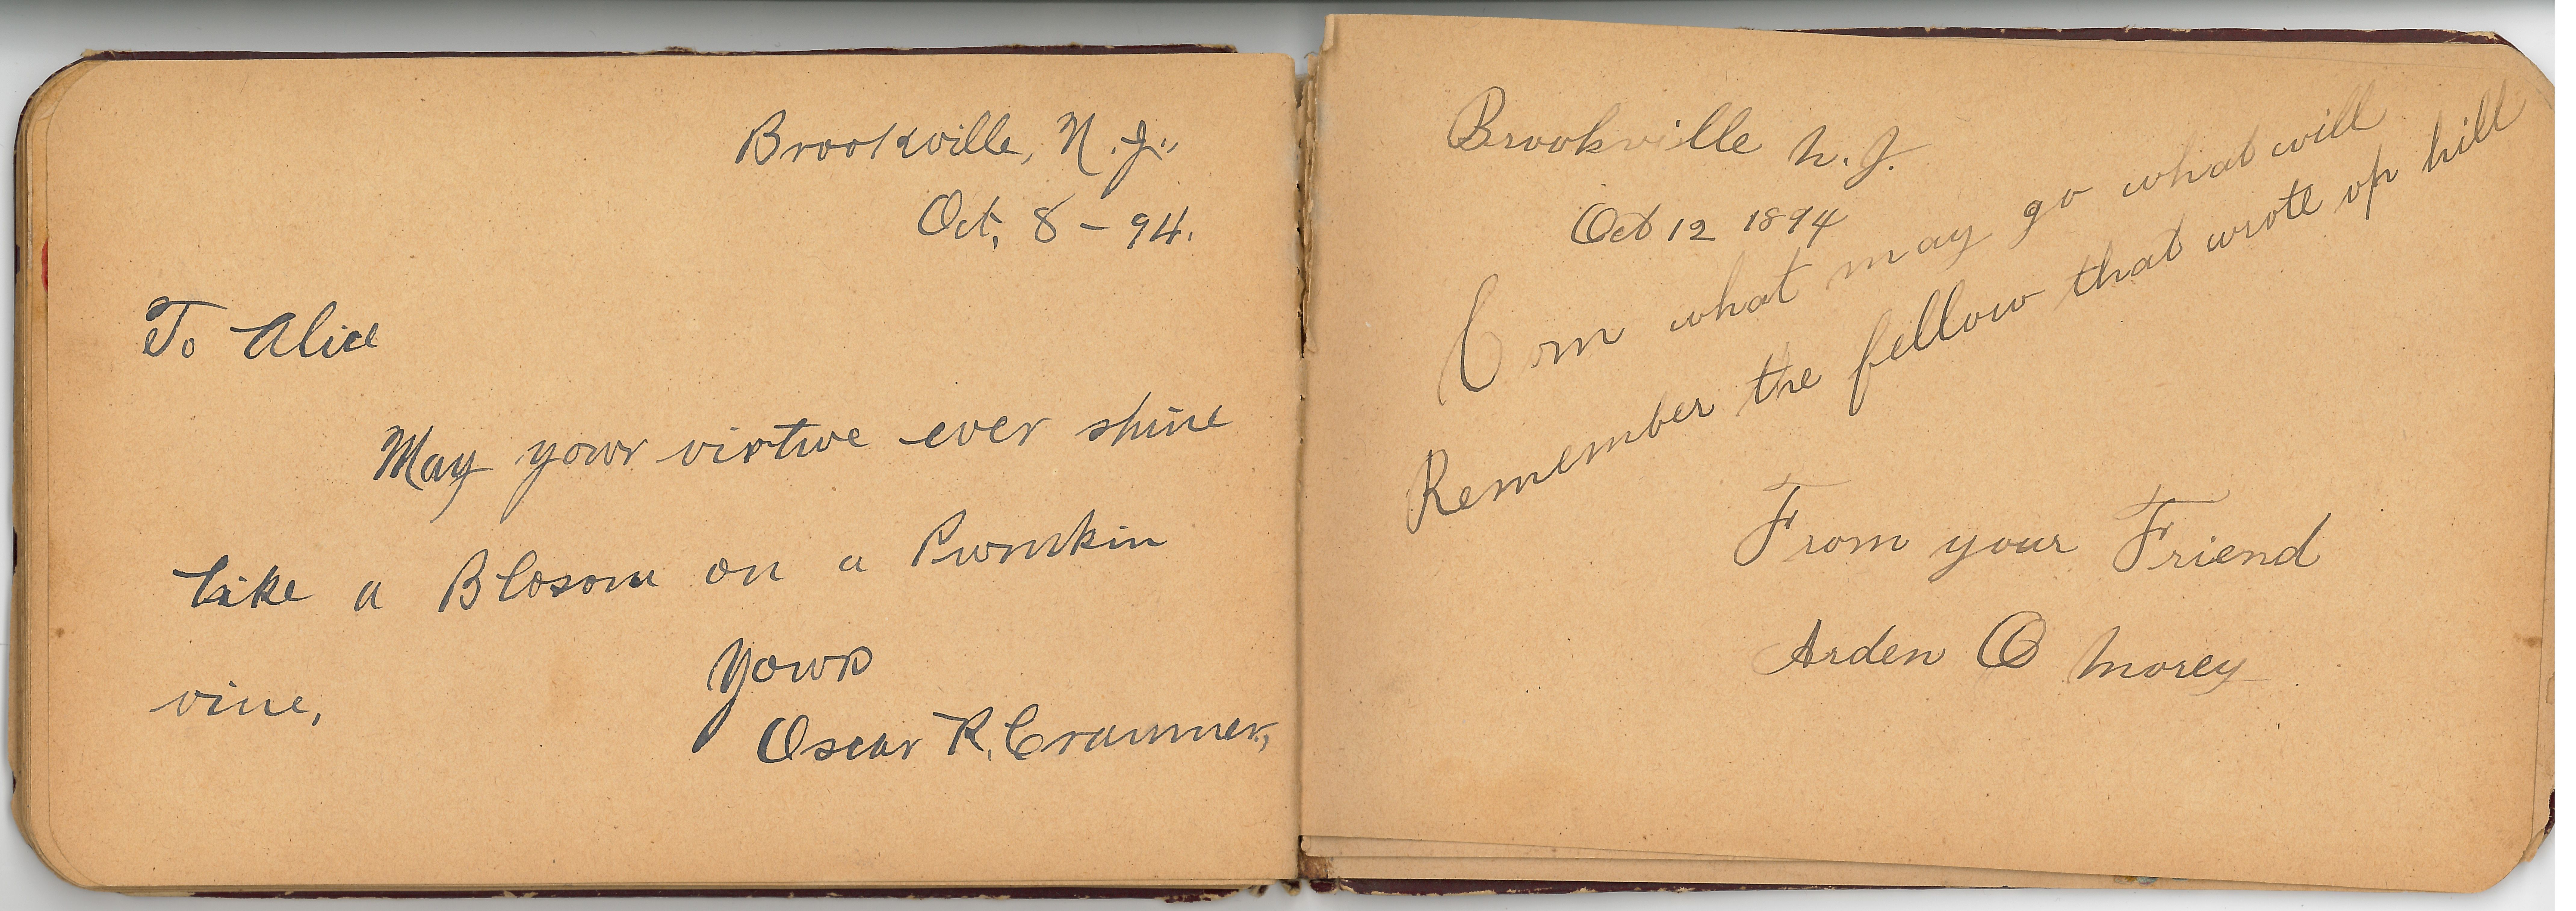 Brookville, N.J.,
Oct, 8 - 94.
To Alice
May your virtue ever shine
like a Blosom on a Pumkin
vine,
Yours
Oscar R. Crammer,
Brookville N.J.
Oct 12 1894
Com what may go what will
Remember the fellow that wrote up hill
From your Friend
Arden O Morey